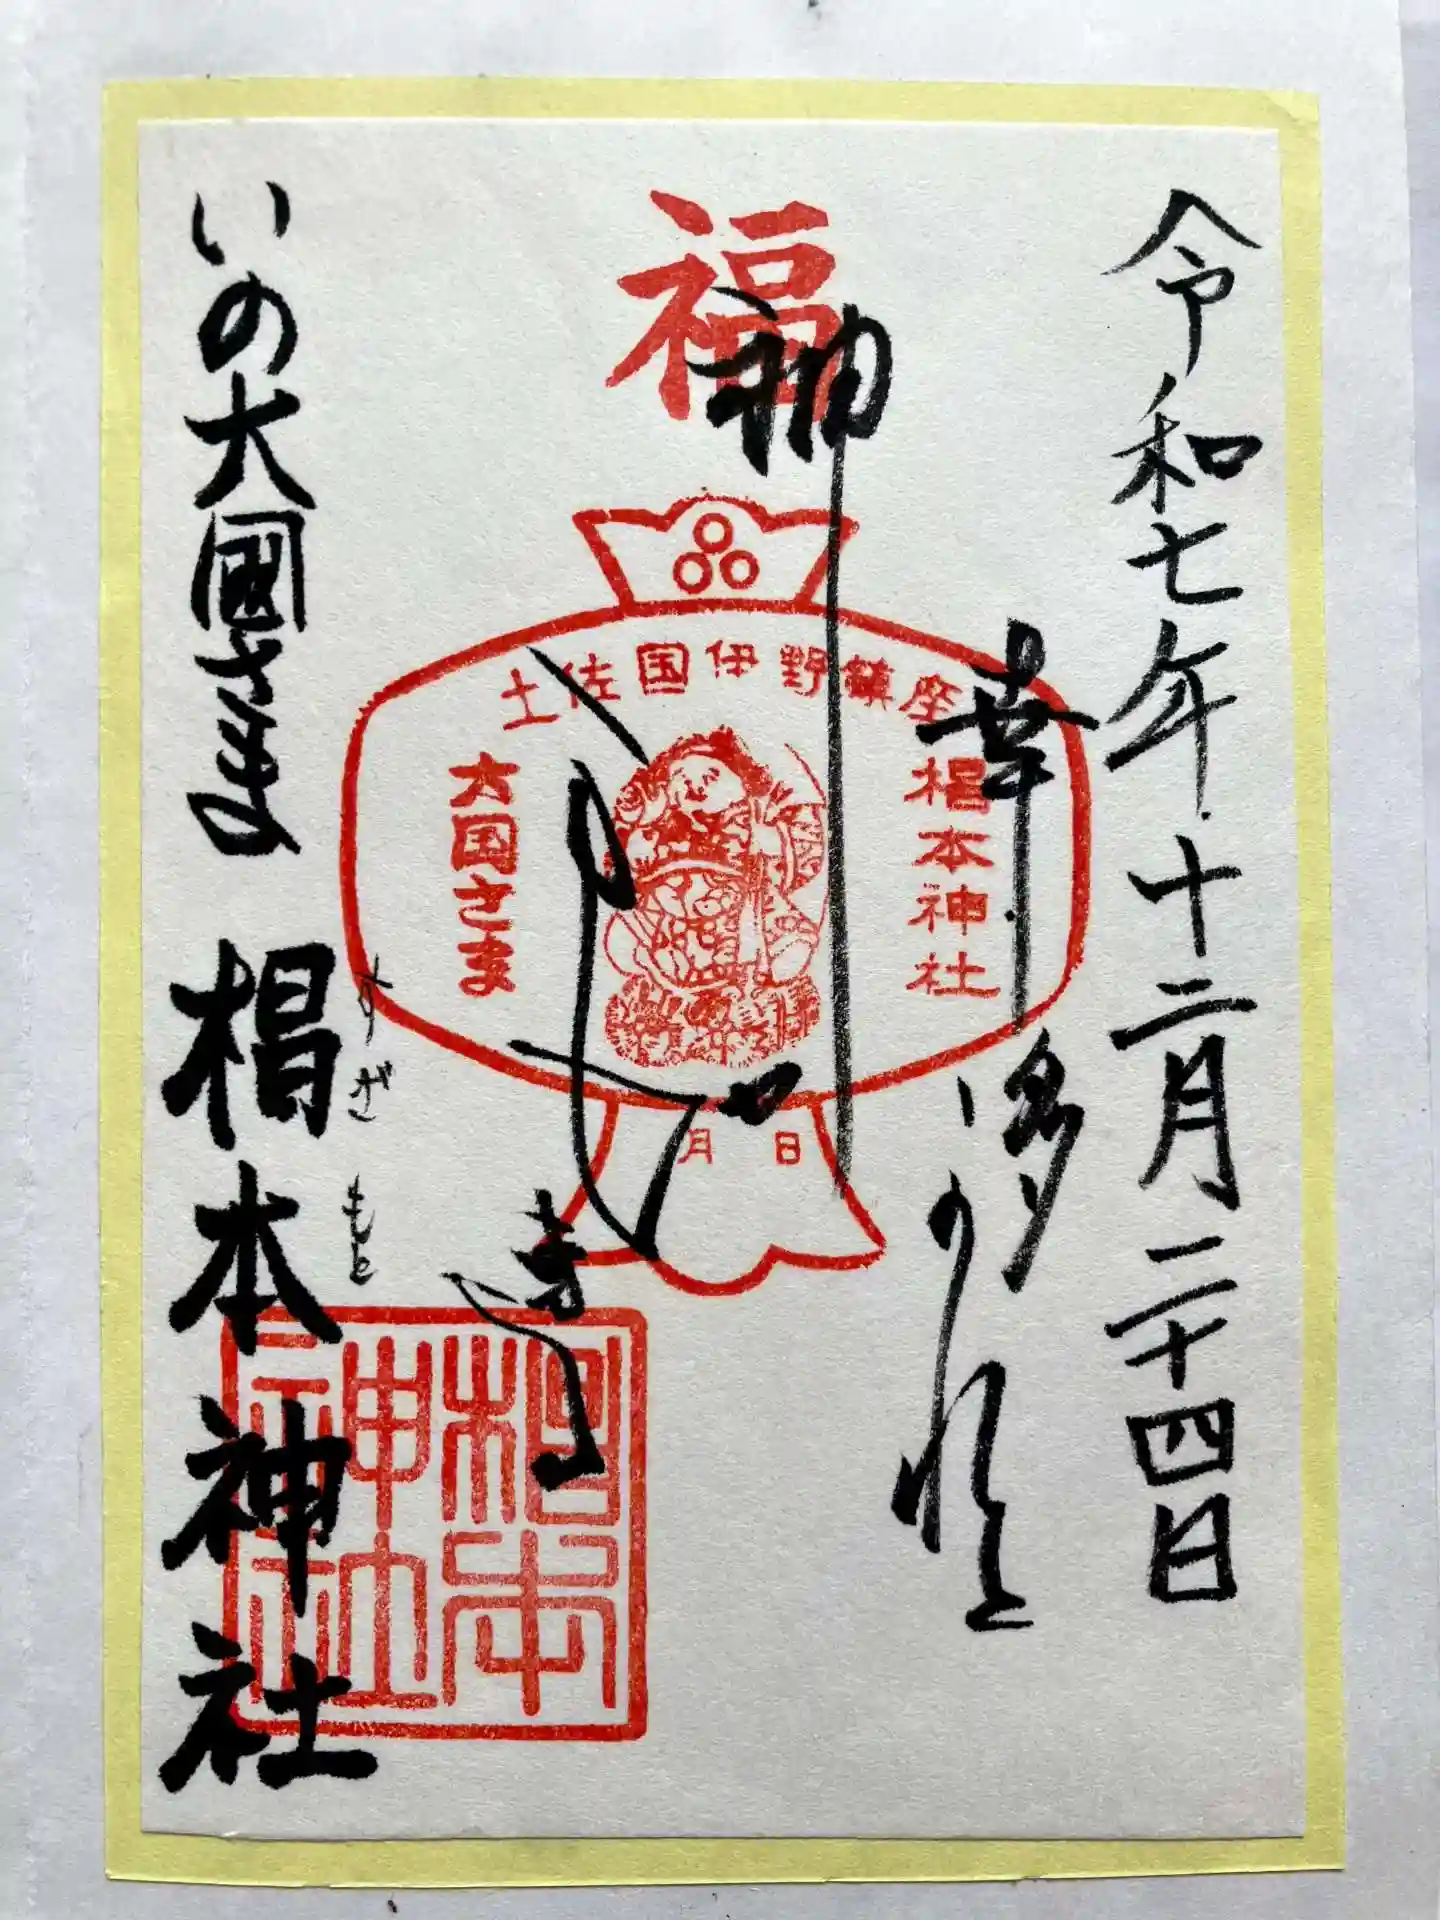 令和七年十二月二十四日
福
神
幸
土佐国伊野鎮座
椙本神社
大国さま
月 日
いの大國さま 椙本神社
すぎ もと
椙本
神社